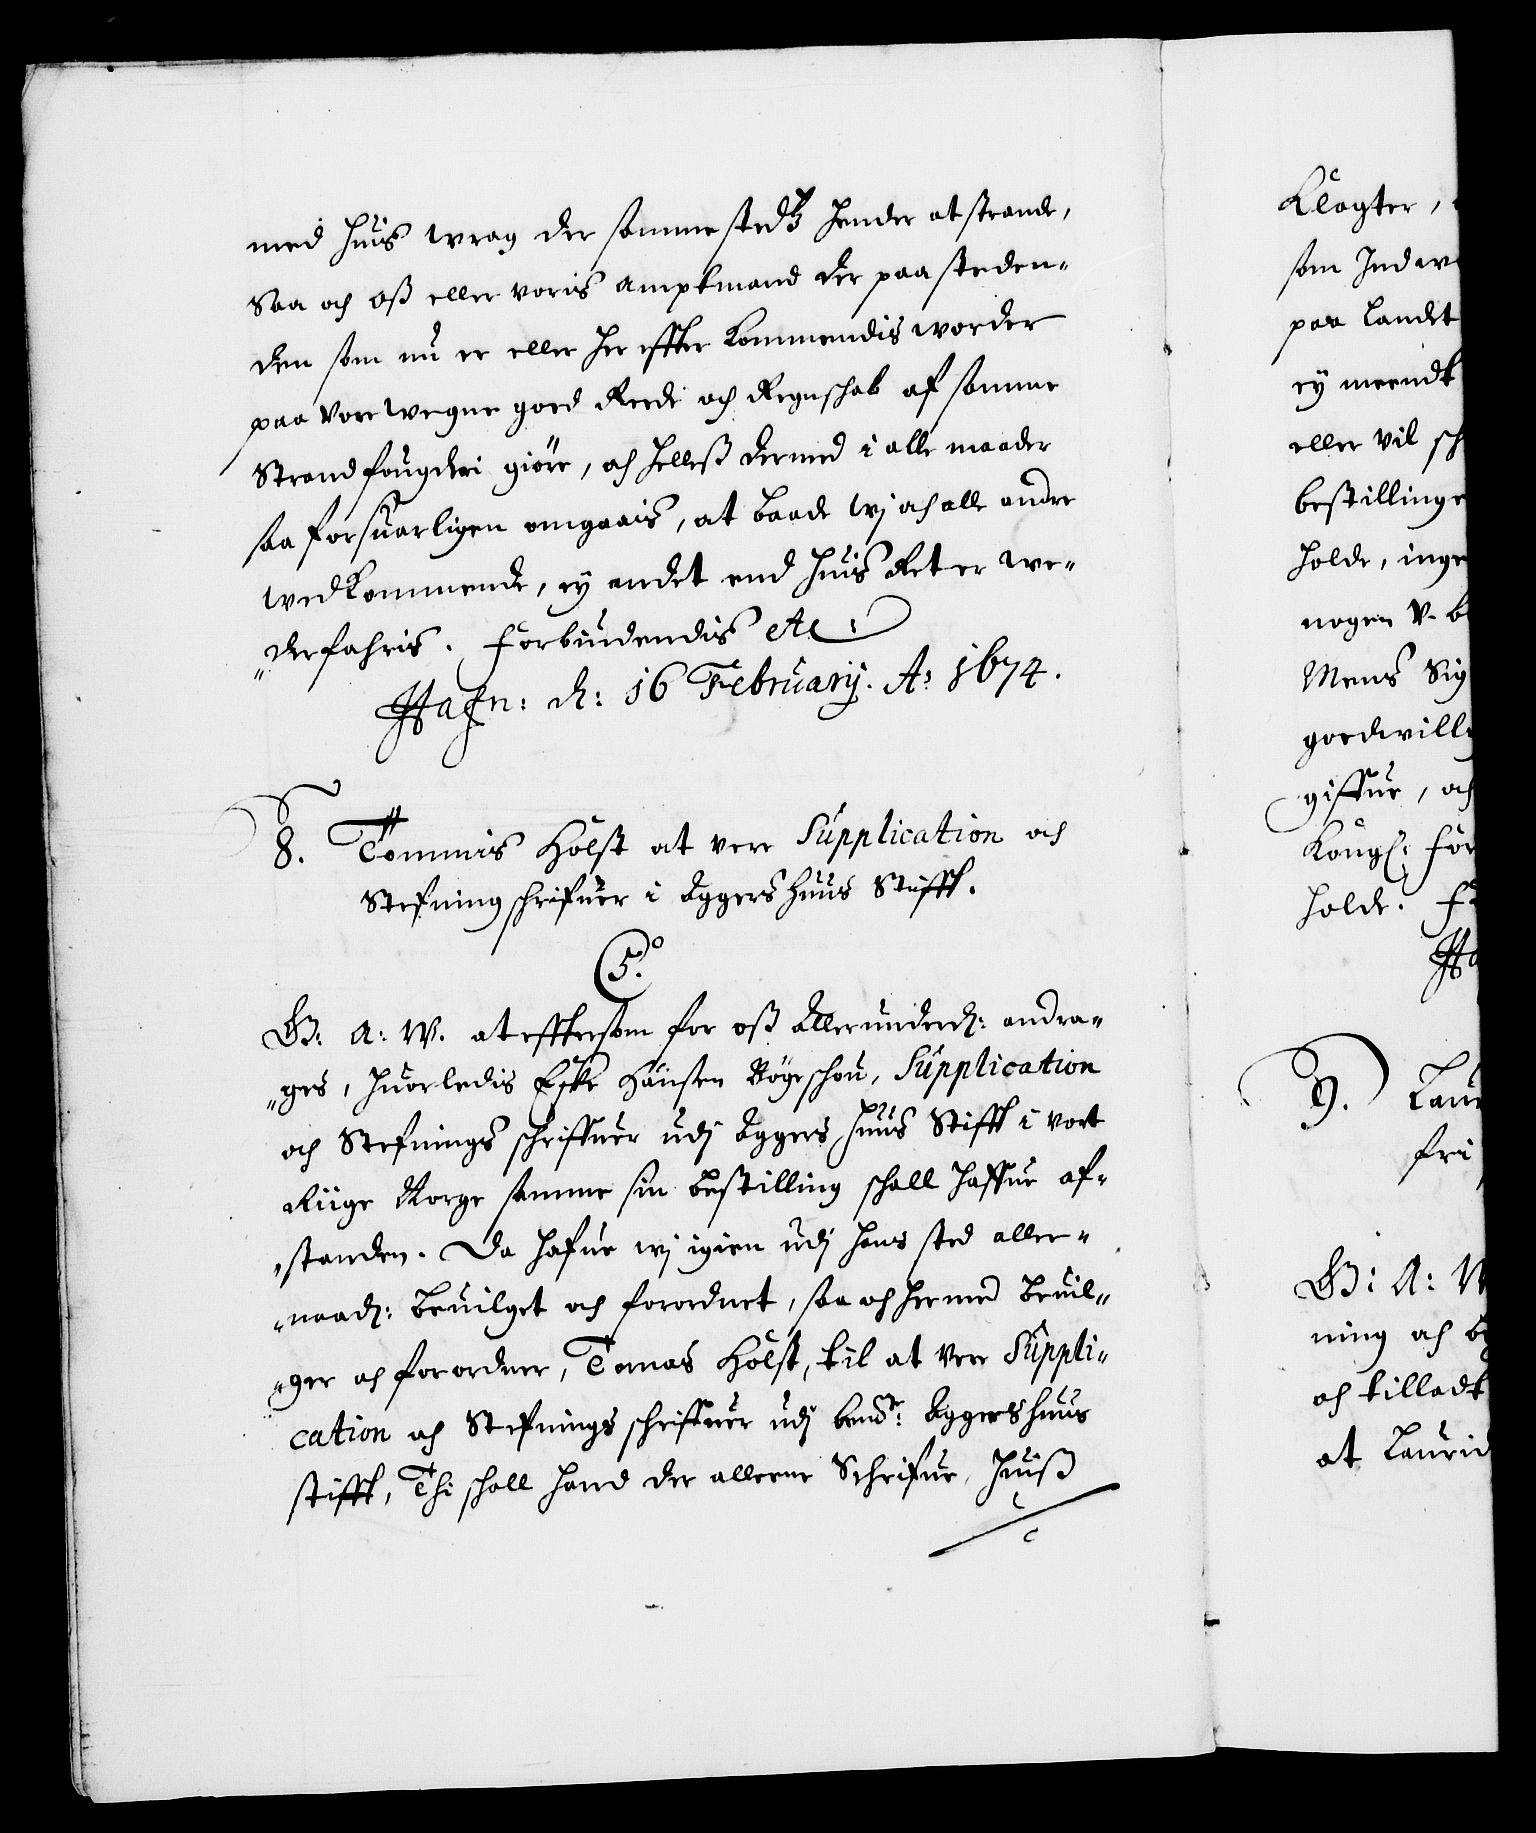 med huis wrag der sammesteds hender at strande,
saa och oß eller voris amptmand der paa steden-
den som nu er eller her effter kommendis worder
paa vore wegne goed Rede och Regnschab af samme
Strandfougderi giöre, och helleß dermed i alle maader
saa forsuarligen omgaais, at baade wj och alle andre
wedkommende, ej andet end huis Ret er we-
derfahris. Forbiudendis etc:
Hafn: d: 16 Februarij. Ao 1674.
8. Tommis Holst at vere Supplication och
Stefning schrifuer i Aggershuus Stifft.
C 5.o
G: A: W. at effterson for oß Allerunderd: andra-
ges, huorledis Eske Hansen Bögeschou, Supplication
och Stefnings schriffuer udj Aggershuus Stifft i vort
Riige Norge samme sin bestilling schall haffue af-
standen. Da hafue wj igien udj hans sted aller-
naad: beuilget och forordnet, saa och hermed beuil-
ger och forordner, Tomas Holst, til at vere Suppli-
cation och Stefnings schriffuer udj bemte: Aggershuus
stifft, Thi schall hand der alleene Schrifue, huiß
Klagter,
som Ind
paa Landet
ej meendt
eller vil sch
bestillinge
holde, inge
nogen V- b
Mens Sig
goedwillig
giffue, och
Kongl: For
holde. F
Ha
9. Laur
fri
G: A: W
ning och b
och tilladt
at Laurid